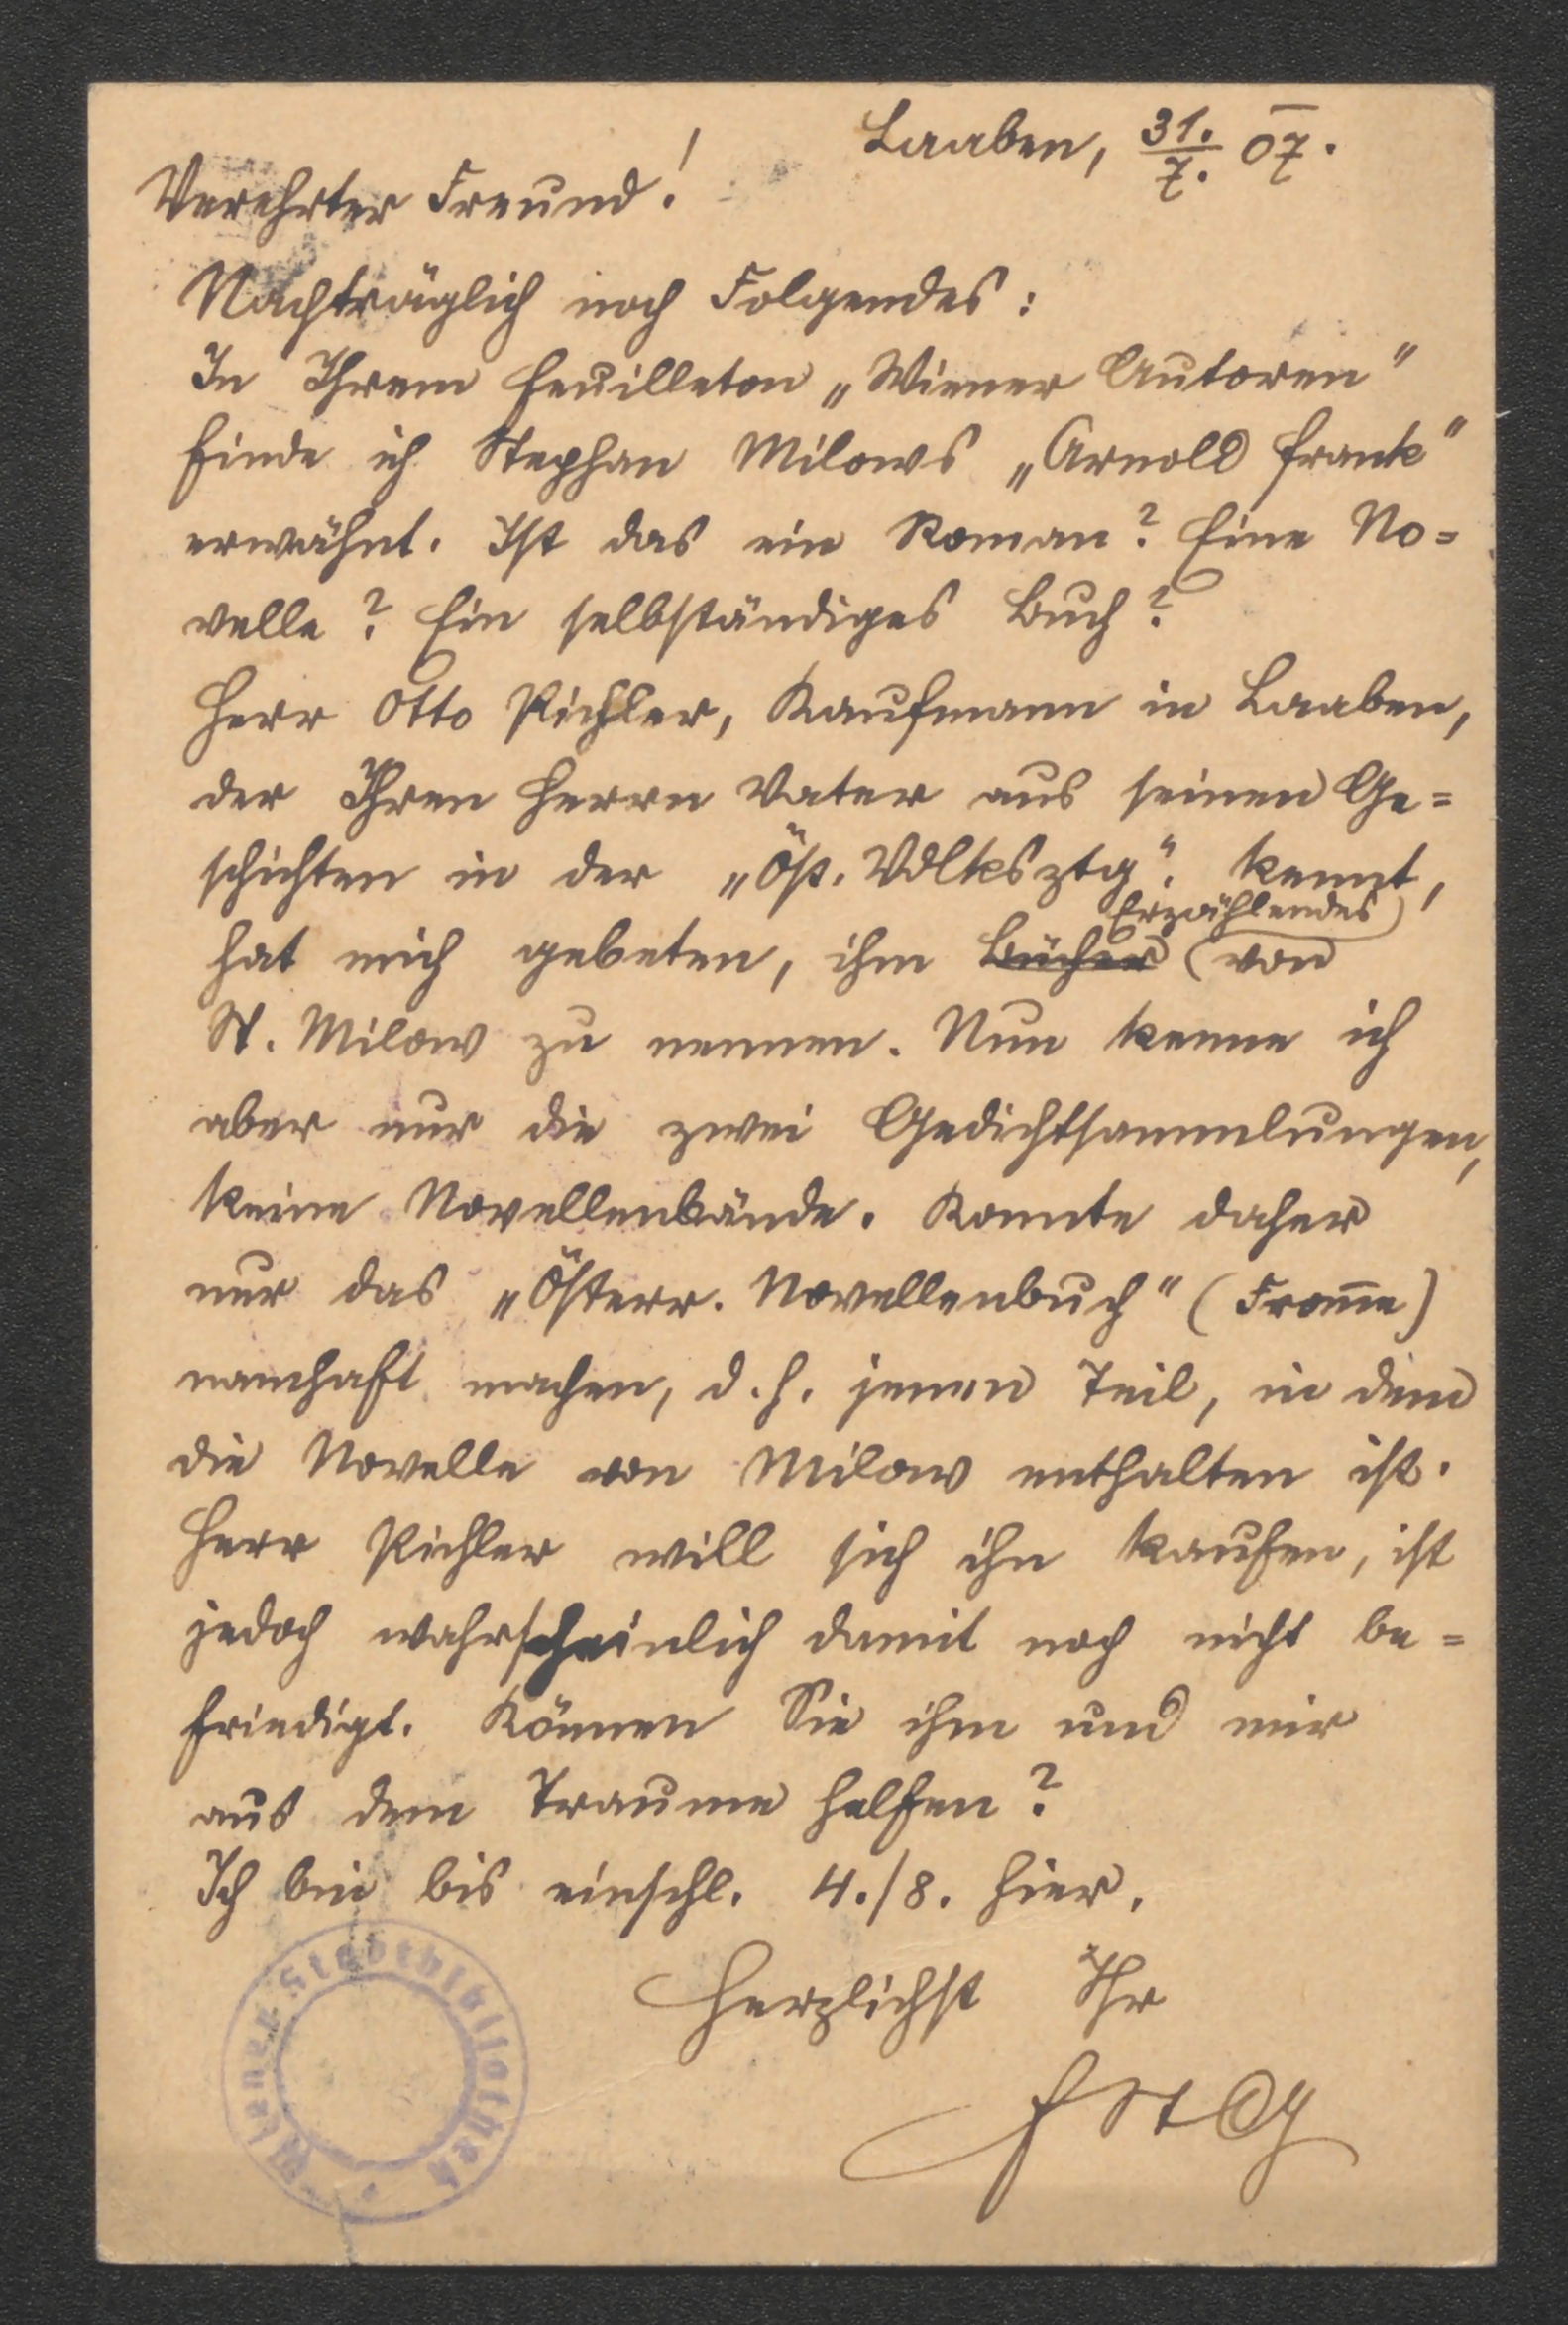 Laaben, 31./7. 07.
Verehrter Freund!
Nachträglich noch Folgendes:
In Ihrem Feuilleton „Wiener Autoren"
finde ich Stephan Milows „Arnold Frank"
erwähnt. Ist das ein Roman? Eine No=
velle? Ein selbständiges Buch?
Herr Otto Pichler, Kaufmann in Laaben,
der Ihren Herrn Vater aus seinen Ge=
schichten in der „Öst. Volksztg". kennt,
hat mich gebeten, ihm Bücher Erzählendes von
St. Milow zu nennen. Nun kenne ich
aber nur die zwei Gedichtsammlungen,
keine Novellenbände. Konnte daher
nur das „Österr. Novellenbuch" (From̅e)
namhaft machen, d. h. jenen Teil, in dem
die Novelle von Milow enthalten ist.
Herr Pichler will sich ihn kaufen, ist
jedoch wahrscheinlich damit noch nicht be=
friedigt. Können Sie ihm und mir
aus dem Traume helfen?
Ich bin bis einschl. 4./8. hier.
Herzlichst Ihr
Wiener Stadtbibliothek